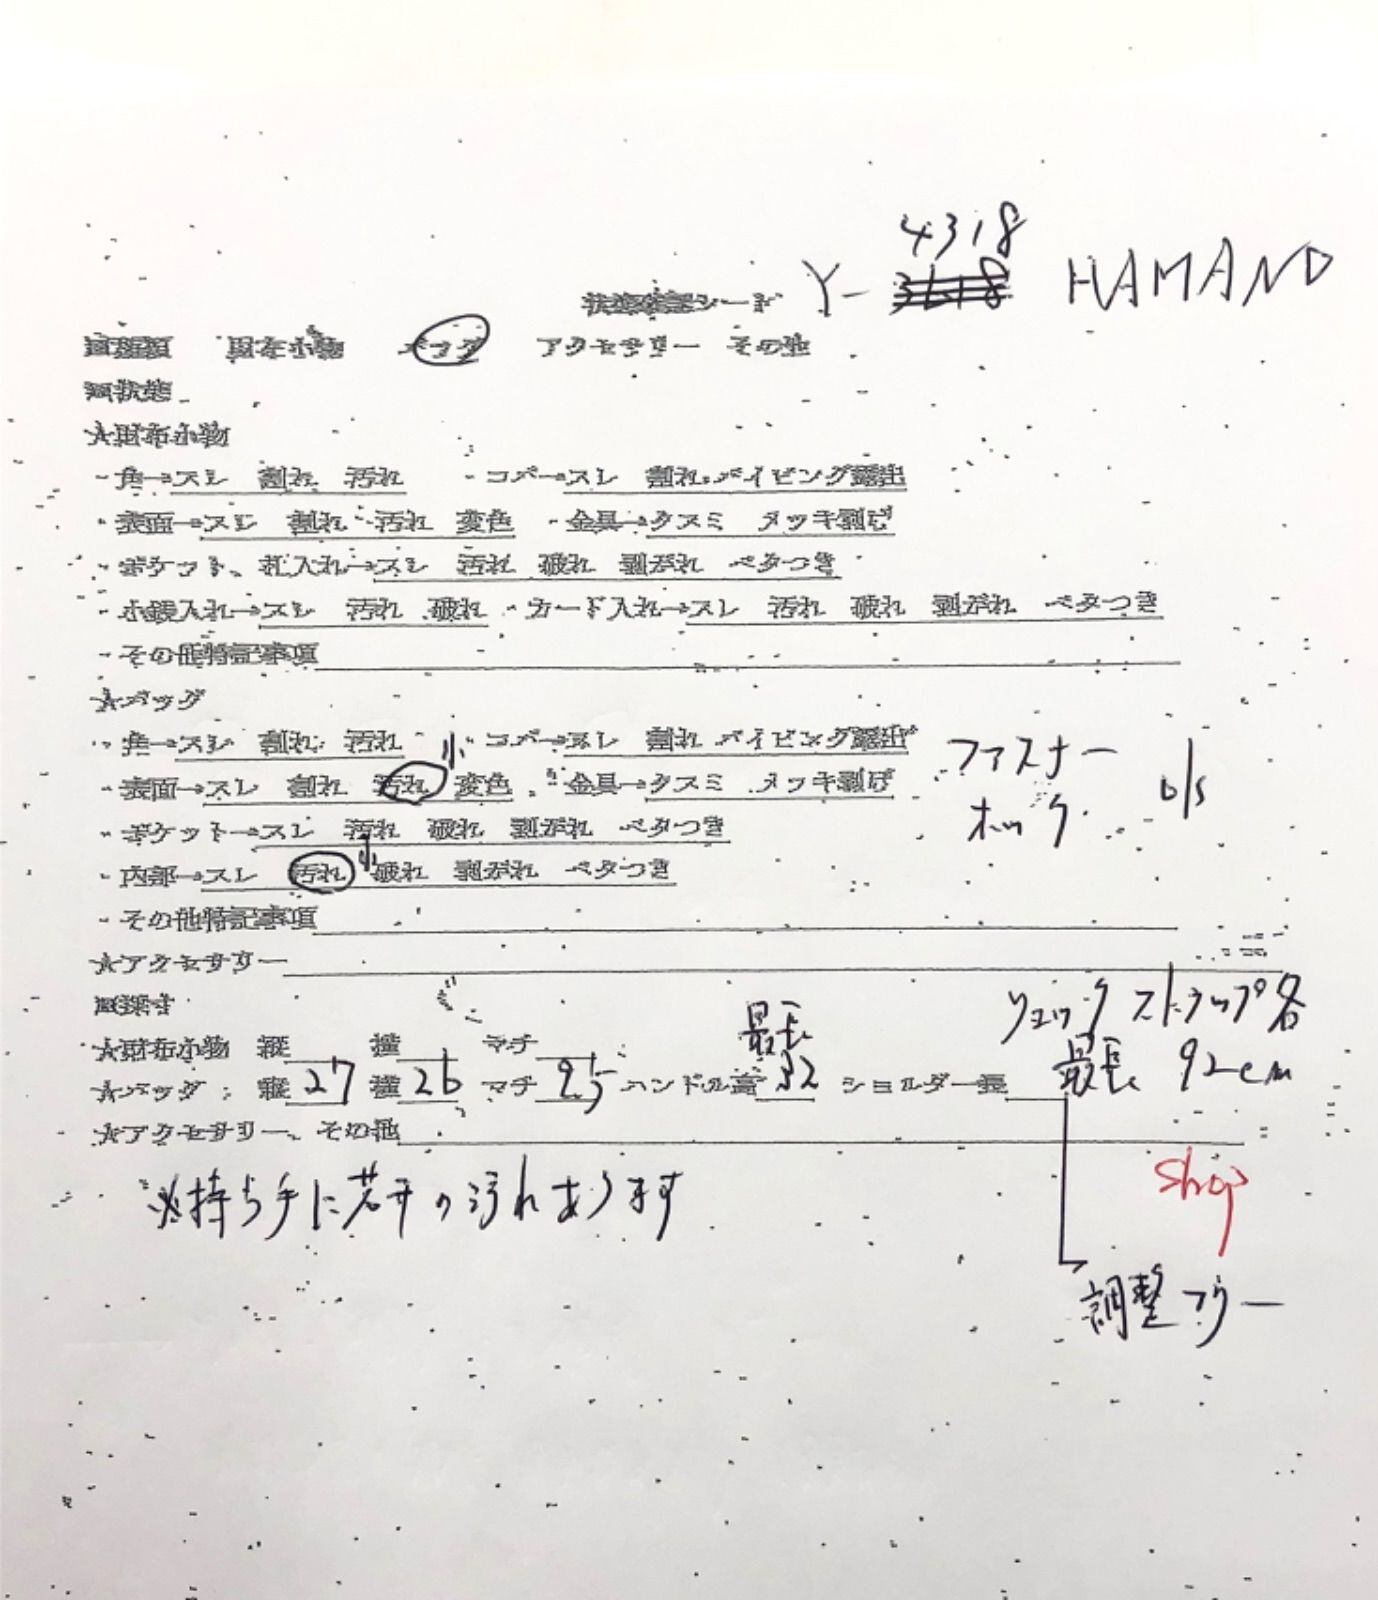 4318
状態確認シート Y- 3618 HAMANO
■種類 財布小物 バッグ アクセサリー その他
■状態
★財布小物
・角→スレ 割れ 汚れ ・コバ→スレ 割れ パイピング露出
・表面→スレ 割れ 汚れ 変色 ・金具→クスミ メッキ剥げ
・ポケット、札入れ→スレ 汚れ 破れ 剥がれ ベタつき
・小銭入れ→スレ 汚れ 破れ ・カード入れ→スレ 汚れ 破れ 剥がれ ベタつき
・その他特記事項
★バッグ
・角→スレ 割れ 汚れ ・コバ→スレ 割れ パイピング露出
小 ファスナー
・表面→スレ 割れ 汚れ 変色 ・金具→クスミ メッキ剥げ
ホック
・ポケット→スレ 汚れ 破れ 剥がれ ベタつき
・内部→スレ 汚れ 小 破れ 剥がれ ベタつき
・その他特記事項
★アクセサリー
■採寸
リュックストラップ各
★財布小物 縦 横 マチ 最長 最長 92cm
★バッグ 縦 27 横 26 マチ 9.5 ハンドル高 32 ショルダー長
★アクセサリー、その他
shop
※持ち手に若干の汚れあります
調整フリー